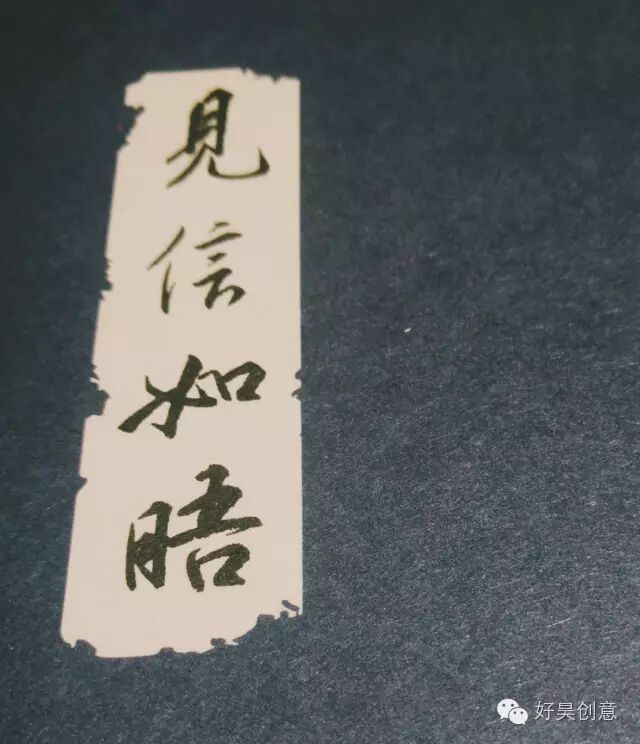 見信如晤
好昊创意